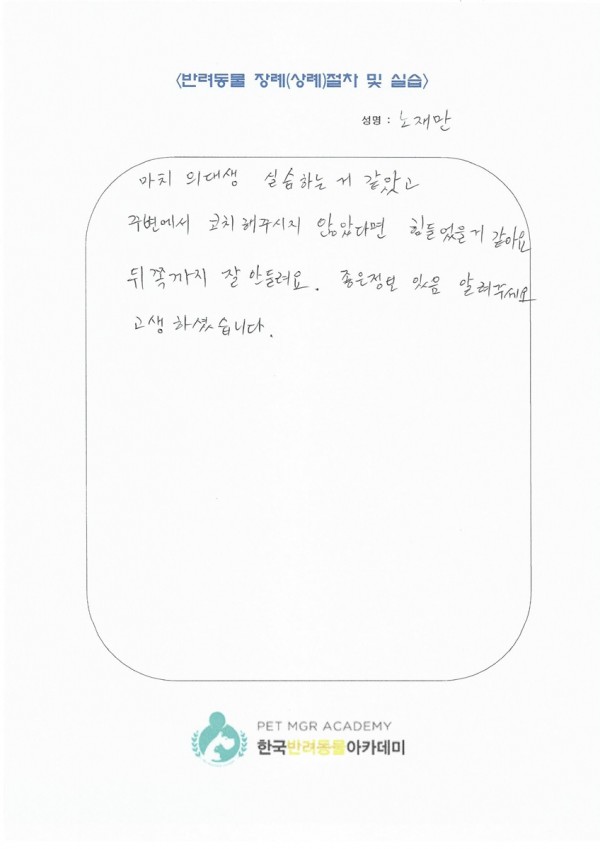 <반려동물 장례(상례)절차 및 실습>
성명 : 노재만
마치 의대생 실습하는 거 같았고
주변에서 코치해주시지 않았다면 힘들었을거 같아요
뒤쪽까지 잘 안들려요. 좋은정보 있음 알려주세요
고생하셨습니다.
PET MGR ACADEMY
한국반려동물아카데미